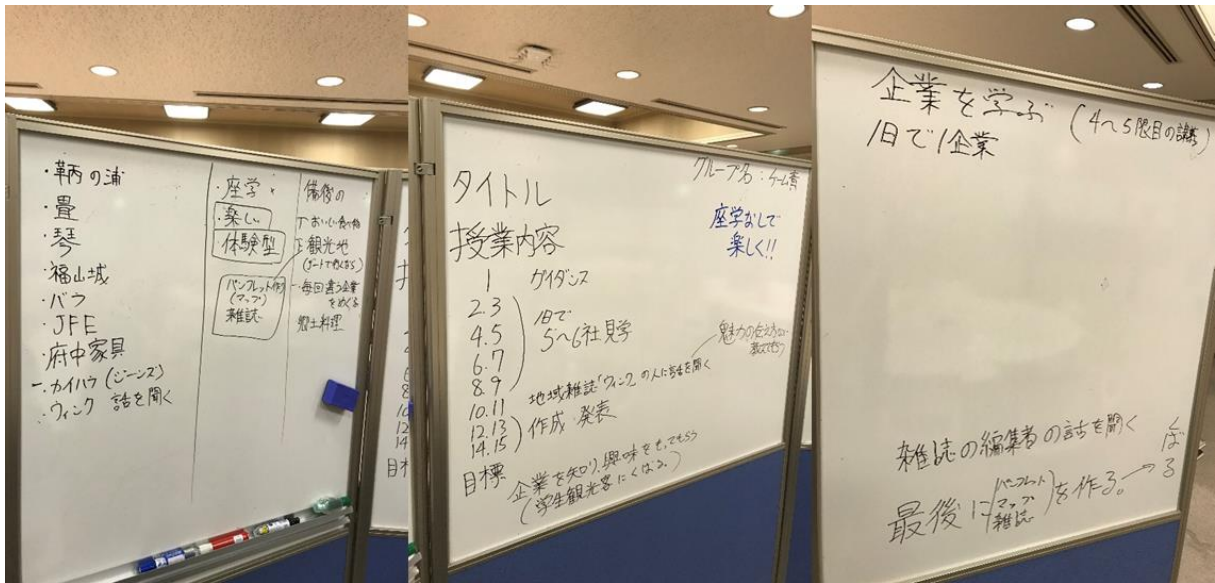 ・鞆の浦
・畳
・琴
・福山城
・バラ
・JFE
・府中家具
・カイハラ(ジーンズ)
・ウィンク 話を聞く
・座学×
・楽しい
体験型
パンフレット
(マップ)
雑誌
備後の
おいしい食べ物
観光地
毎回違う企業
をめぐる
郷土料理
グループ名:チーム
タイトル
座学なしで
楽しく!!
授業内容
1 ガイダンス
2.3
4.5
6.7
8.9
1日で
5〜6社見学
魅力の伝え方
10.11 地域雑誌「ウィンク」の人に話を聞く
12.13
14.15
作成 発表
目標 企業を知り、興味をもってもらう
(学生観光客にくばる。)
企業を学ぶ (4〜5限目の講義)
1日で1企業
雑誌の編集者の話を聞く
最後に(パンフレット
マップ
雑誌)を作る。→くばる